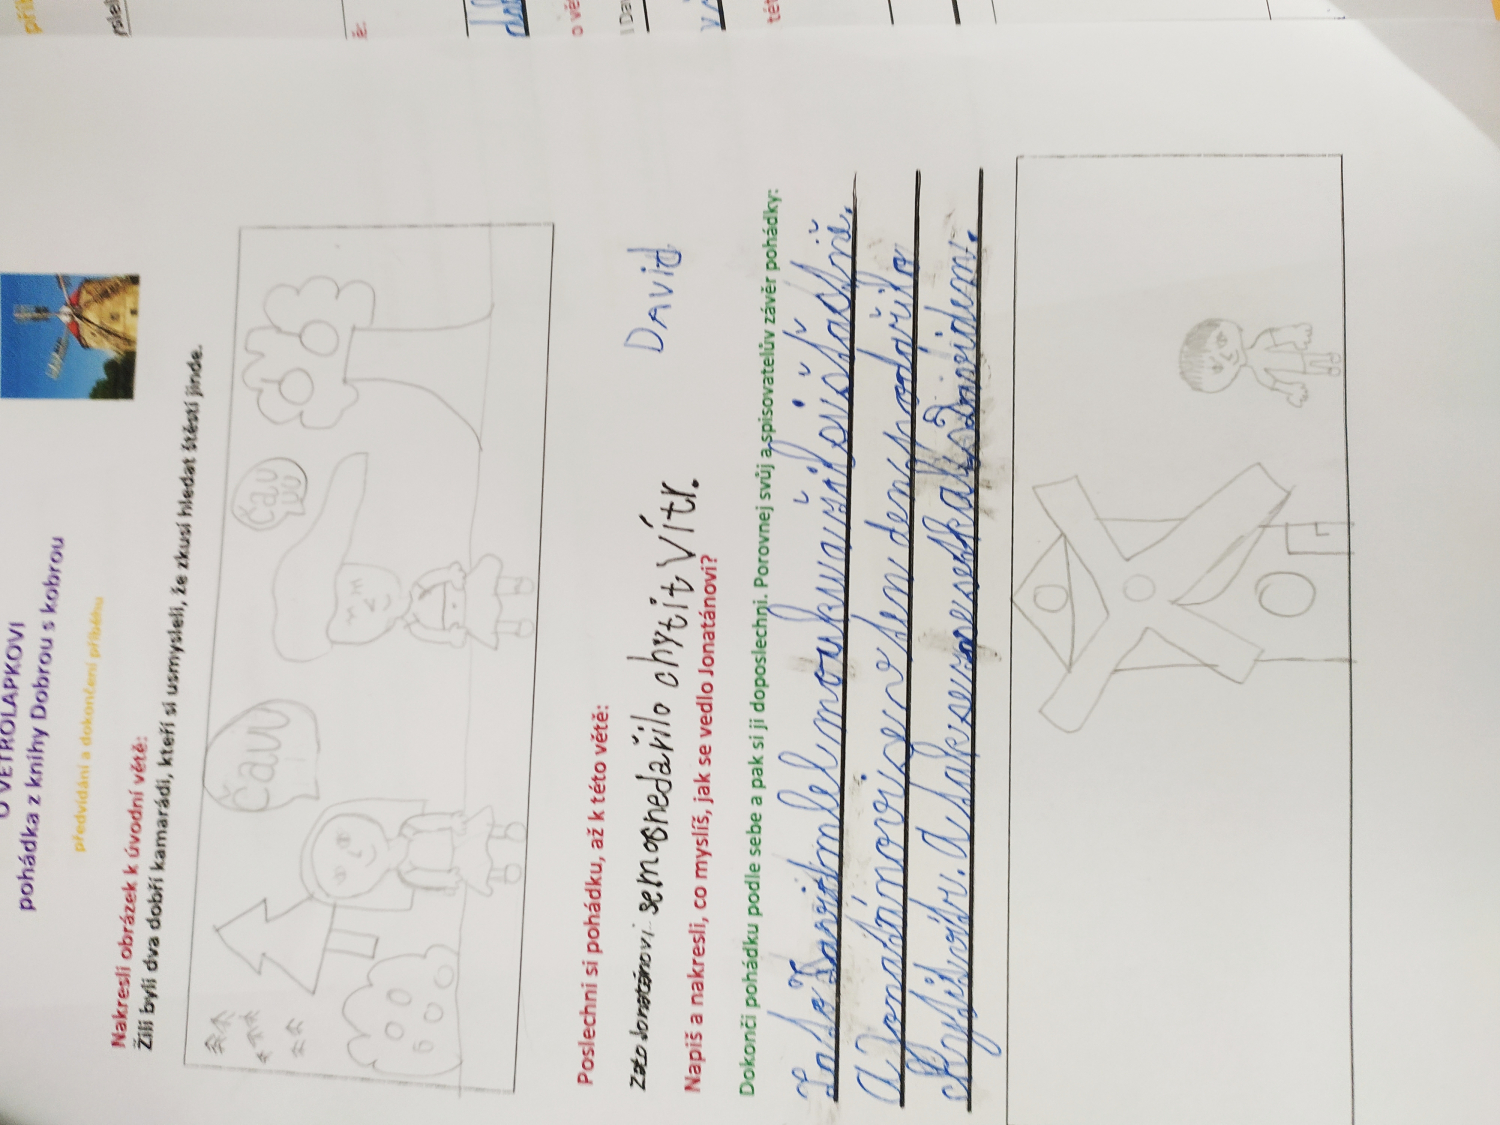 O VĚTROLAPKOVI
pohádka z knihy Dobrou s kobrou
předvídání a dokončení příběhu
Nakresli obrázek k úvodní větě:
Žili byli dva dobří kamarádi, kteří si usmysleli, že zkusí hledat štěstí jinde.
Čau
Čau
Poslechni si pohádku, až k této větě:
Zato Jonatánovi se mo nedařilo chytit vítr.
DAVID
Napiš a nakresli, co myslíš, jak se vedlo Jonatánovi?
Dokonči pohádku podle sebe a pak si ji doposlechni. Porovnej svůj a spisovatelův závěr pohádky:
David mlel mouku
a Jonatánovi se den podařilo
chytit vítr. a tak se Davidem.